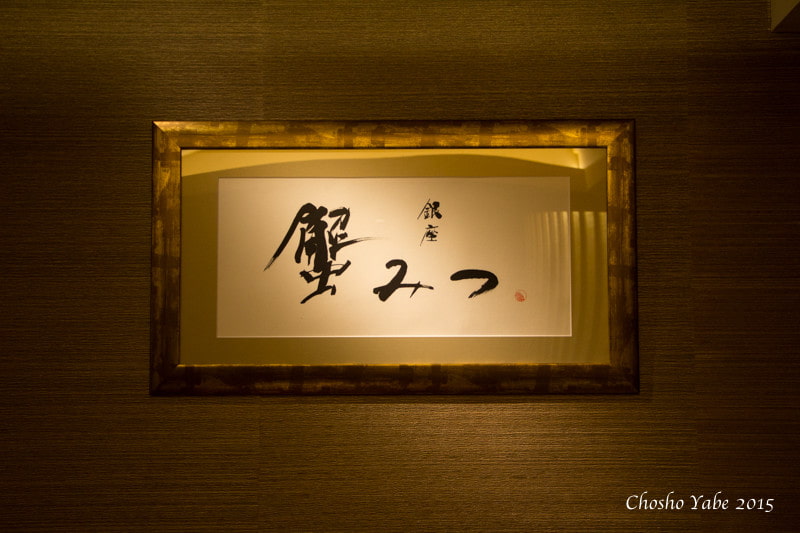 銀座
蟹みつ
Chosho Yabe 2015